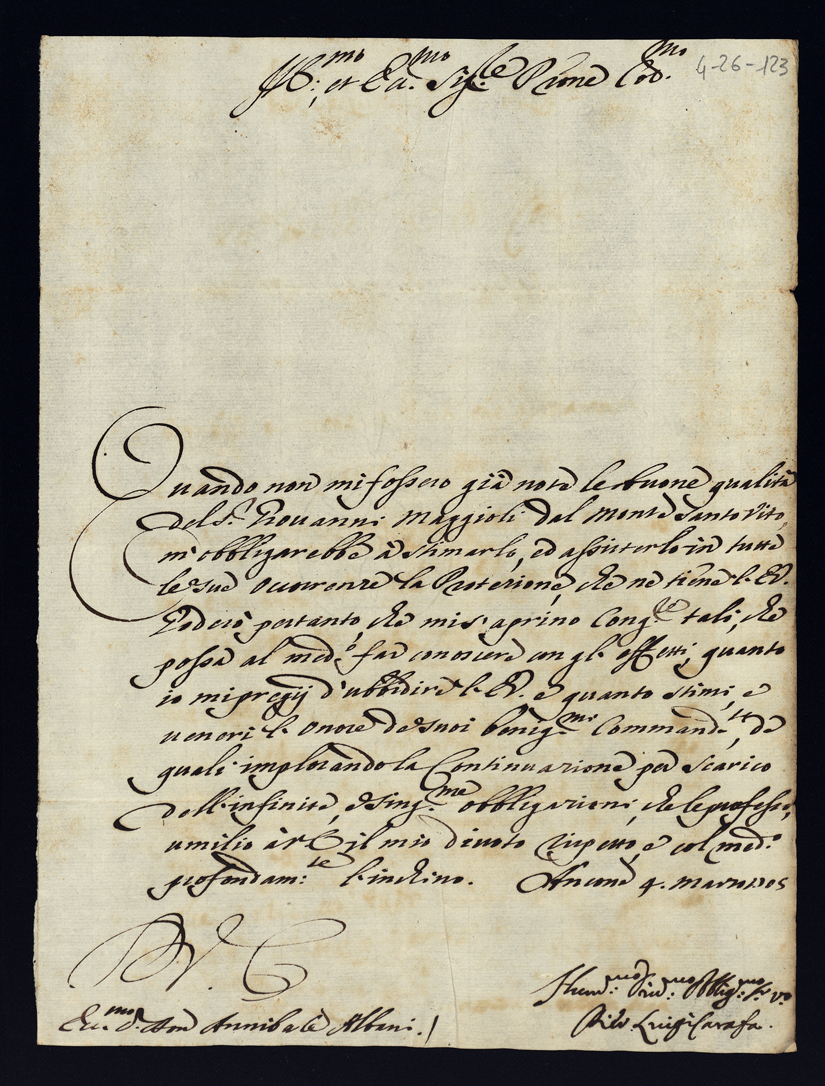 Ill:mo et Ecc.mo Sig.re Prone Col.mo
4-26-123
Quando non mi fossero già note le buone qualità
del S.r Giovanni Maggioli dal Monte Santo Vito,
mi obbligarebbe à stimarlo, ed assisterlo in tutte
le sue occorrenze la Protezione, che ne tiene l'E.V.
Goderò pertanto, che mi s'aprino Cong.re tali, che
possa al med.o far conoscere con gl'effetti, quanto
io mi pregij d'ubbidire l'E.V. e quanto stimi, e
veneri l'onore de suoi benig.mi Commandi, de
quali implorando la Continuazione per scarico
dell'infinite, e sing.me obbligazioni, che le professo,
umilio à V.E. il mio divoto rispetto, e col med.o
profondam:te l'inchino. Ancona 4. Marzo 1705
D. V. E.
Ecc.mo D. Annibale Albani.
Hum:mo Div:mo Obblig:mo Ser.re
Luigi Carafa.